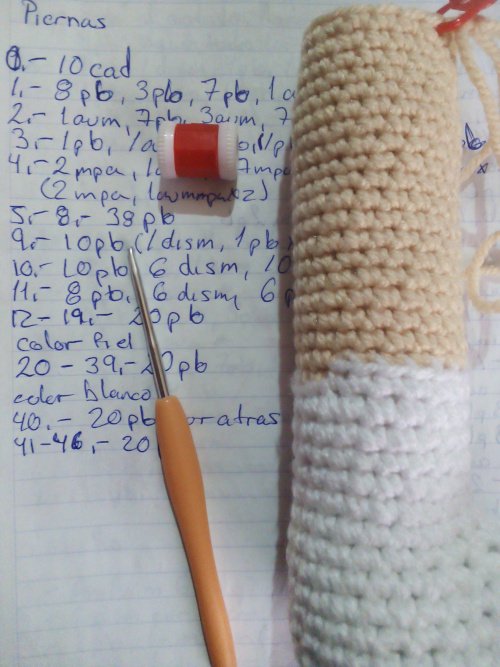 Piernas
0.- 10 cad
1.- 8 pb, 3 pb, 7 pb, 1 a
2.- 1 aum, 7pb, 3 aum, 7
3.- 1pb,
4.- 2 mpa, 7 mpa
(2 mpa,
5.- 8.- 38 pb
9.- 10pb (1 dism, 1 pb
10.- 10 pb, 6 dism, 10
11.- 8 pb, 6 dism, 6 p
12- 19.- 20 pb
color Piel
20 - 39.- 20 pb
color blanco
40.- 20 pb or atras
41-46.- 20